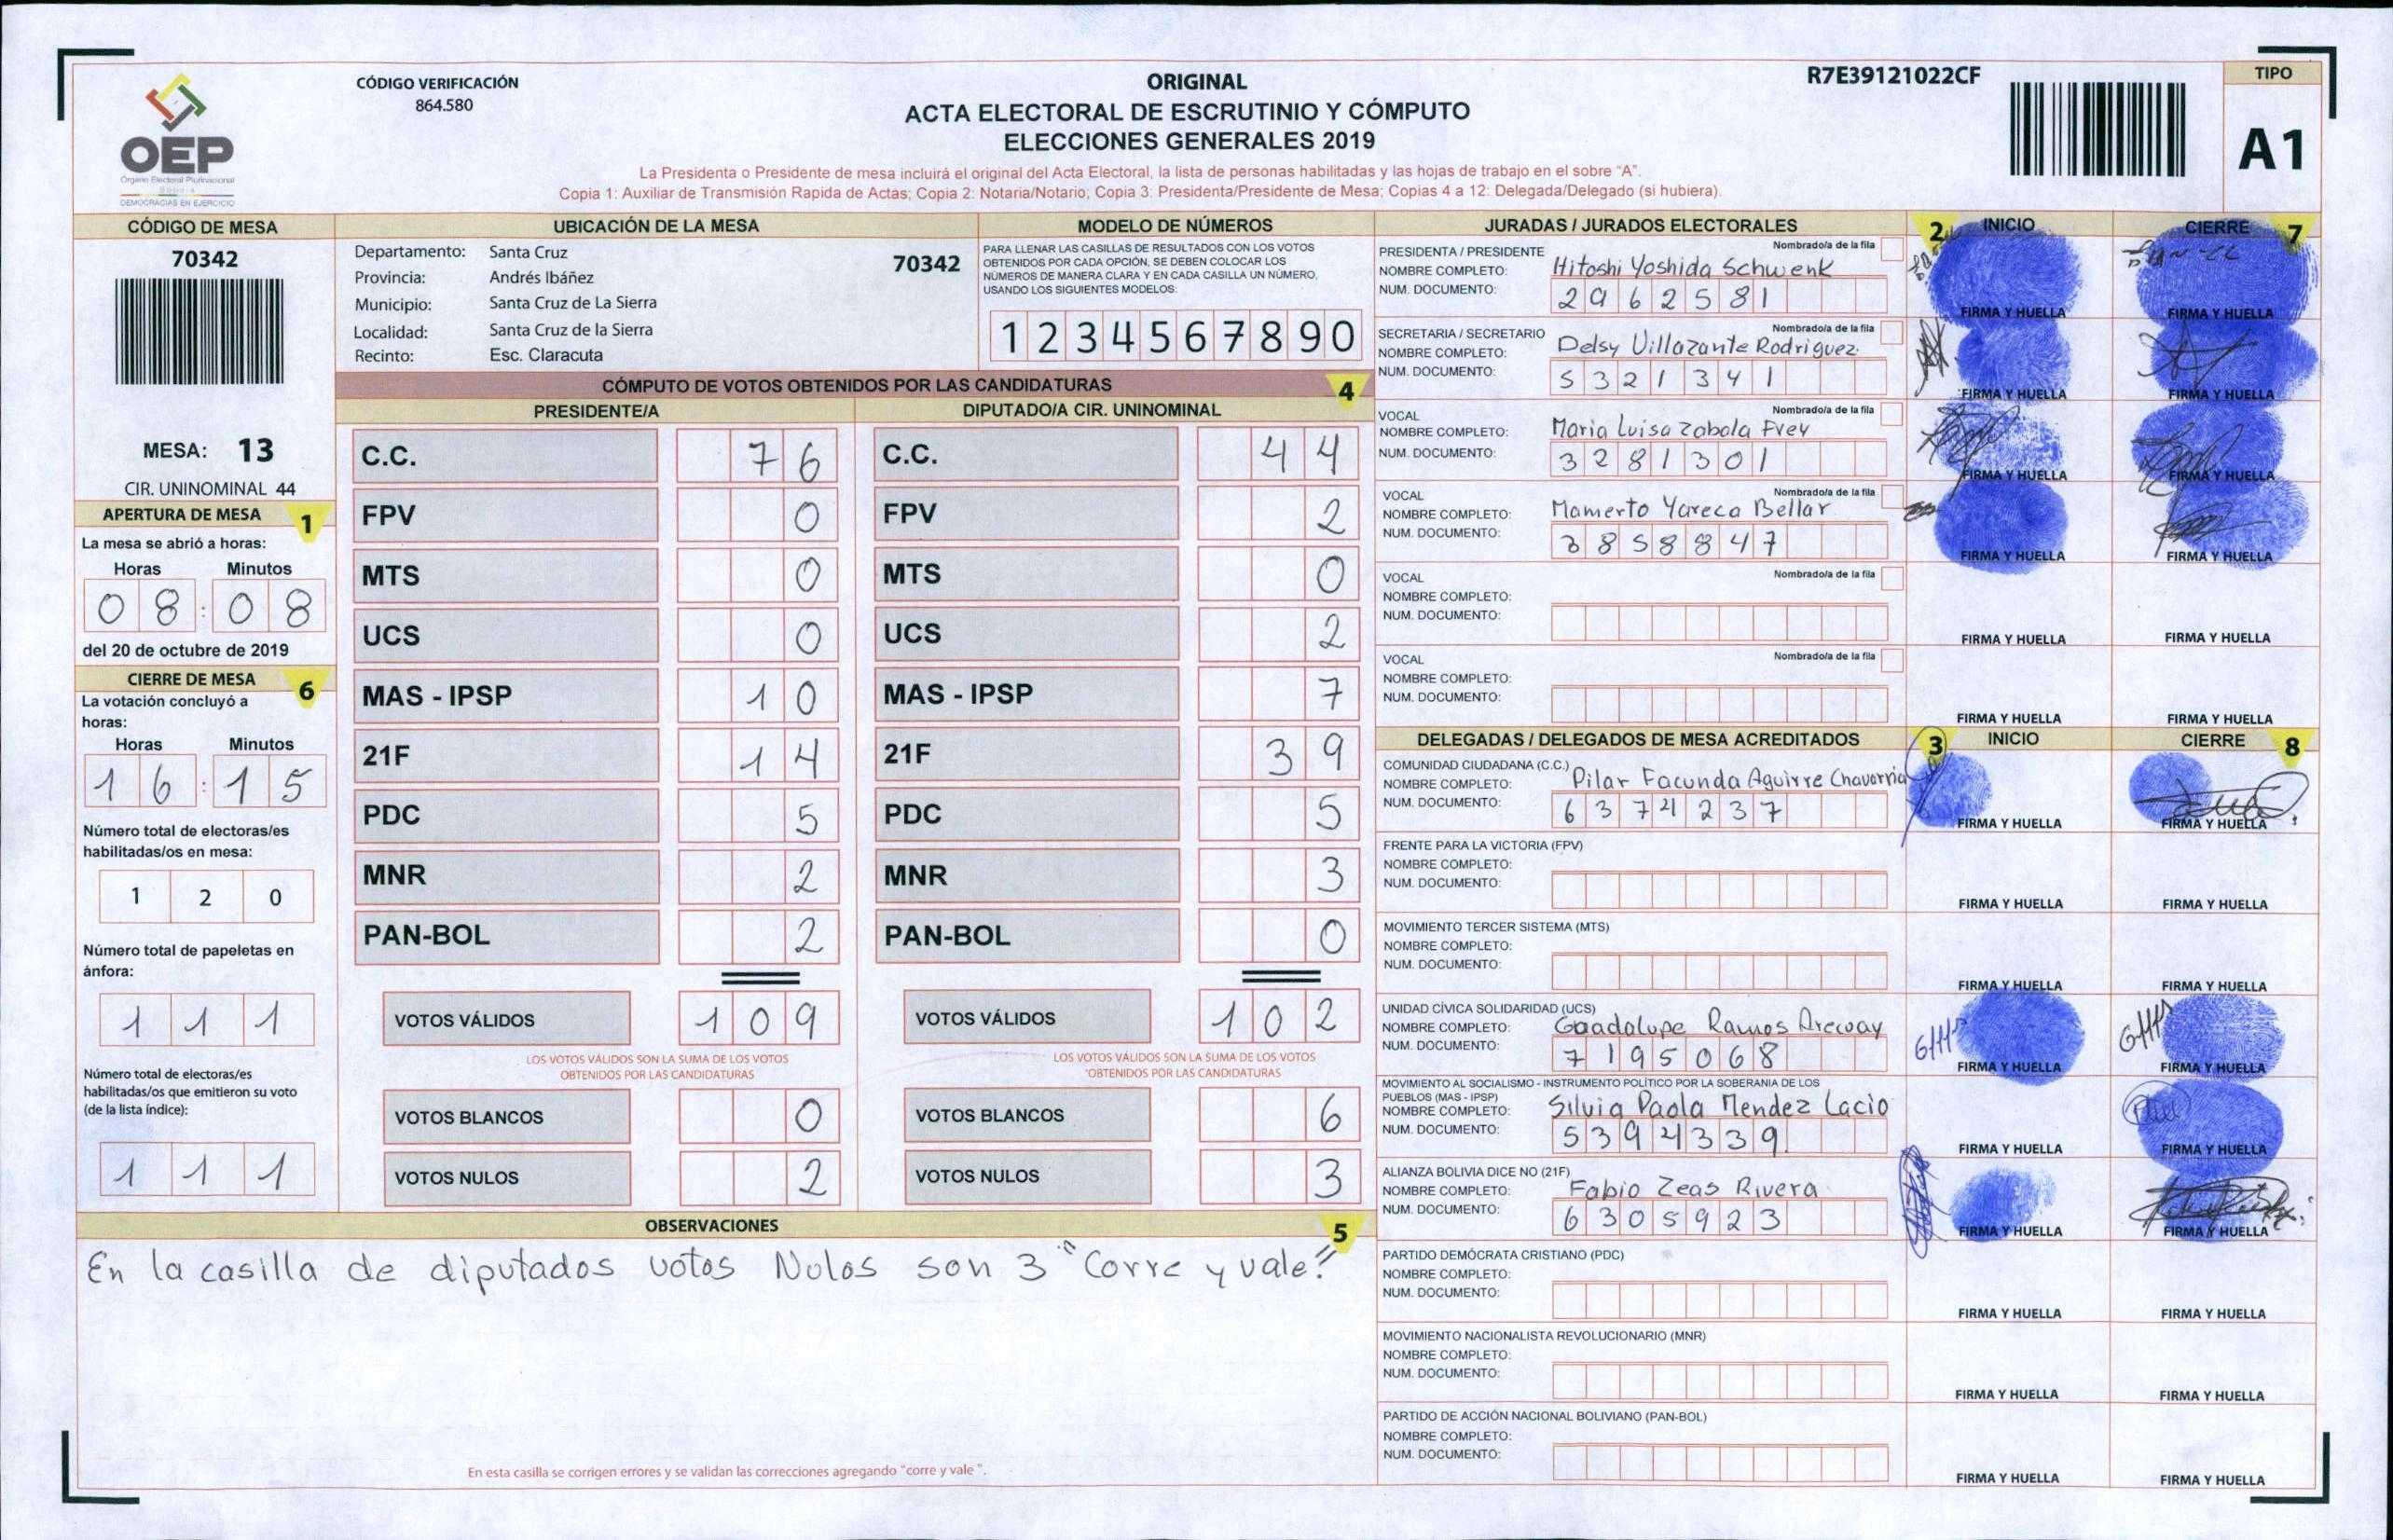 CÓDIGO VERIFICACIÓN
864.580
ORIGINAL
ACTA ELECTORAL DE ESCRUTINIO Y CÓMPUTO
ELECCIONES GENERALES 2019
La Presidenta o Presidente de mesa incluirá el original del Acta Electoral, la lista de personas habilitadas y las hojas de trabajo en el sobre "A".
Copia 1: Auxiliar de Transmisión Rapida de Actas; Copia 2: Notaria/Notario; Copia 3: Presidenta/Presidente de Mesa; Copias 4 a 12: Delegada/Delegado (si hubiera).
R7E39121022CF
TIPO
A1
OEP
Órgano Electoral Plurinacional
Bolivia
DEMOCRACIAS EN EJERCICIO
CÓDIGO DE MESA
70342
MESA: 13
CIR. UNINOMINAL 44
APERTURA DE MESA 1
La mesa se abrió a horas:
Horas Minutos
08:08
del 20 de octubre de 2019
CIERRE DE MESA 6
La votación concluyó a
horas:
Horas Minutos
16:15
Número total de electoras/es
habilitadas/os en mesa:
1 2 0
Número total de papeletas en
ánfora:
1 1 1
Número total de electoras/es
habilitadas/os que emitieron su voto
(de la lista índice):
1 1 1
UBICACIÓN DE LA MESA
Departamento: Santa Cruz
Provincia: Andrés Ibáñez
Municipio: Santa Cruz de La Sierra
Localidad: Santa Cruz de la Sierra
Recinto: Esc. Claracuta
70342
MODELO DE NÚMEROS
PARA LLENAR LAS CASILLAS DE RESULTADOS CON LOS VOTOS
OBTENIDOS POR CADA OPCIÓN, SE DEBEN COLOCAR LOS
NÚMEROS DE MANERA CLARA Y EN CADA CASILLA UN NÚMERO,
USANDO LOS SIGUIENTES MODELOS:
1 2 3 4 5 6 7 8 9 0
CÓMPUTO DE VOTOS OBTENIDOS POR LAS CANDIDATURAS 4
PRESIDENTE/A DIPUTADO/A CIR. UNINOMINAL
C.C. 76 C.C. 44
FPV 0 FPV 2
MTS 0 MTS 0
UCS 0 UCS 2
MAS - IPSP 10 MAS - IPSP 7
21F 14 21F 39
PDC 5 PDC 5
MNR 2 MNR 3
PAN-BOL 2 PAN-BOL 0
VOTOS VÁLIDOS 109 VOTOS VÁLIDOS 102
LOS VOTOS VÁLIDOS SON LA SUMA DE LOS VOTOS LOS VOTOS VÁLIDOS SON LA SUMA DE LOS VOTOS
OBTENIDOS POR LAS CANDIDATURAS OBTENIDOS POR LAS CANDIDATURAS
VOTOS BLANCOS 0 VOTOS BLANCOS 6
VOTOS NULOS 2 VOTOS NULOS 3
OBSERVACIONES 5
En la casilla de diputados votos Nulos son 3 "Corre y vale"
En esta casilla se corrigen errores y se validan las correcciones agregando "corre y vale ".
JURADAS / JURADOS ELECTORALES 2 INICIO CIERRE 7
PRESIDENTA / PRESIDENTE Nombrado/a de la fila
NOMBRE COMPLETO: Hitoshi Yoshida Schwenk
NUM. DOCUMENTO: 2962581
FIRMA Y HUELLA FIRMA Y HUELLA
SECRETARIA / SECRETARIO Nombrado/a de la fila
NOMBRE COMPLETO: Delsy Villazante Rodriguez
NUM. DOCUMENTO: 5321341
FIRMA Y HUELLA FIRMA Y HUELLA
VOCAL Nombrado/a de la fila
NOMBRE COMPLETO: Maria Luisa Zabala Frey
NUM. DOCUMENTO: 3281301
FIRMA Y HUELLA FIRMA Y HUELLA
VOCAL Nombrado/a de la fila
NOMBRE COMPLETO: Mamerto Yareca Bellar
NUM. DOCUMENTO: 3858847
FIRMA Y HUELLA FIRMA Y HUELLA
VOCAL Nombrado/a de la fila
NOMBRE COMPLETO:
NUM. DOCUMENTO:
FIRMA Y HUELLA FIRMA Y HUELLA
VOCAL Nombrado/a de la fila
NOMBRE COMPLETO:
NUM. DOCUMENTO:
FIRMA Y HUELLA FIRMA Y HUELLA
DELEGADAS / DELEGADOS DE MESA ACREDITADOS 3 INICIO CIERRE 8
COMUNIDAD CIUDADANA (C.C.)
NOMBRE COMPLETO: Pilar Facunda Aguirre Chavarria
NUM. DOCUMENTO: 6374237
FIRMA Y HUELLA FIRMA Y HUELLA
FRENTE PARA LA VICTORIA (FPV)
NOMBRE COMPLETO:
NUM. DOCUMENTO:
FIRMA Y HUELLA FIRMA Y HUELLA
MOVIMIENTO TERCER SISTEMA (MTS)
NOMBRE COMPLETO:
NUM. DOCUMENTO:
FIRMA Y HUELLA FIRMA Y HUELLA
UNIDAD CÍVICA SOLIDARIDAD (UCS)
NOMBRE COMPLETO: Guadalupe Ramos
NUM. DOCUMENTO: 7195068
FIRMA Y HUELLA FIRMA Y HUELLA
MOVIMIENTO AL SOCIALISMO - INSTRUMENTO POLÍTICO POR LA SOBERANIA DE LOS
PUEBLOS (MAS - IPSP)
NOMBRE COMPLETO: Silvia Paola Mendez Lacio
NUM. DOCUMENTO: 5394339
FIRMA Y HUELLA FIRMA Y HUELLA
ALIANZA BOLIVIA DICE NO (21F)
NOMBRE COMPLETO: Fabio Zeas Rivera
NUM. DOCUMENTO: 6305923
FIRMA Y HUELLA FIRMA Y HUELLA
PARTIDO DEMÓCRATA CRISTIANO (PDC)
NOMBRE COMPLETO:
NUM. DOCUMENTO:
FIRMA Y HUELLA FIRMA Y HUELLA
MOVIMIENTO NACIONALISTA REVOLUCIONARIO (MNR)
NOMBRE COMPLETO:
NUM. DOCUMENTO:
FIRMA Y HUELLA FIRMA Y HUELLA
PARTIDO DE ACCIÓN NACIONAL BOLIVIANO (PAN-BOL)
NOMBRE COMPLETO:
NUM. DOCUMENTO:
FIRMA Y HUELLA FIRMA Y HUELLA